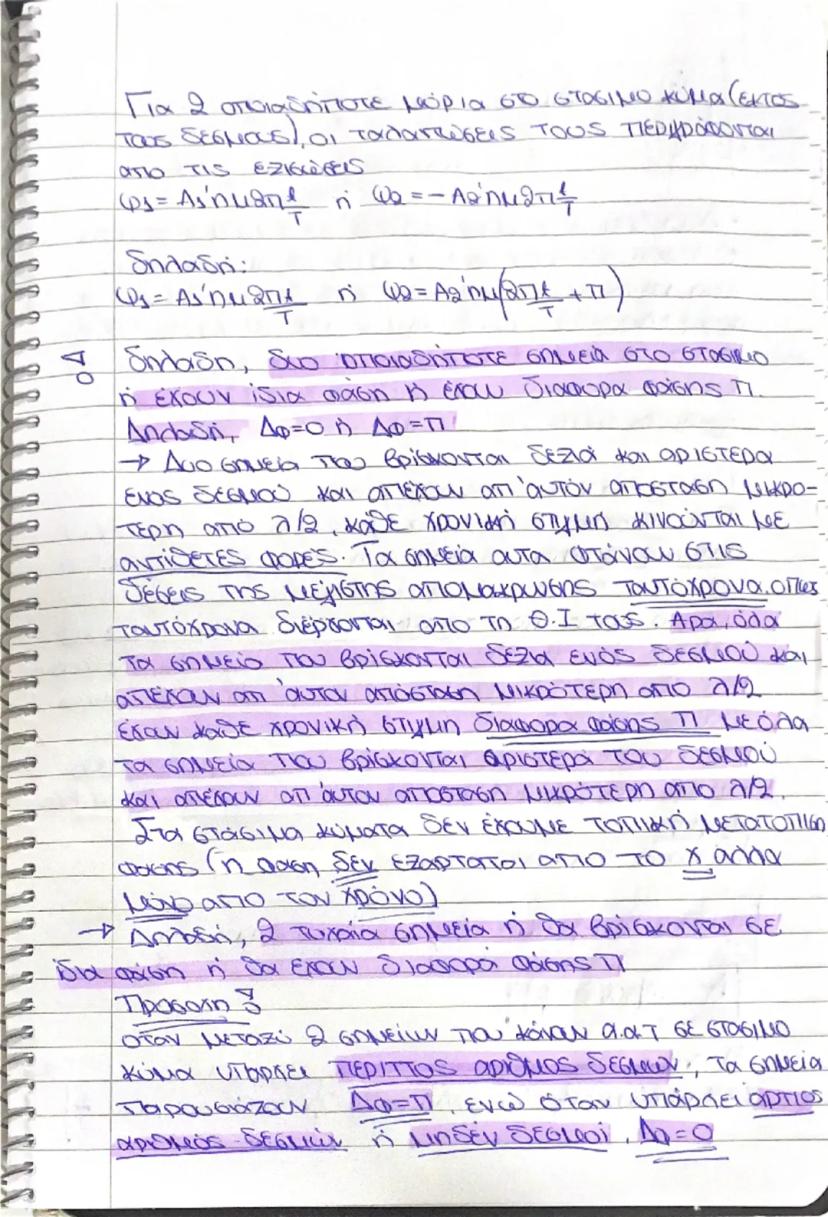 Για 2 οποιαδήποτε μόρια στο στάσιμο κύμα (εκτός
τους δεσμούς), οι ταλαντώσεις τους περιγράφονται
από τις εξισώσεις
ψ1 = A1'ημ2π t/T ή ψ2 = -A2'ημ2π t/T
δηλαδή:
ψ1 = A1'ημ2πt/T ή ψ2 = A2'ημ(2πt/T + π)
δηλαδή, δυο οποιαδήποτε σημεία στο στάσιμο
ή έχουν ίδια φάση ή έχουν διαφορά φάσης π.
Δηλαδή, Δφ=0 ή Δφ=π
→ Δυο σημεία που βρίσκονται δεξιά και αριστερά
ενός δεσμού και απέχουν απ'αυτόν απόσταση μικρό-
τερη από λ/2, κάθε χρονική στιγμή κινούνται με
αντίθετες φορές. Τα σημεία αυτά φτάνουν στις
θέσεις της μέγιστης απομάκρυνσης ταυτόχρονα, όπως
ταυτόχρονα διέρχονται από τη Θ.Ι τους. Άρα, όλα
τα σημεία που βρίσκονται δεξιά ενός δεσμού και
απέχουν απ'αυτον απόσταση μικρότερη από λ/2
έχουν κάθε χρονική στιγμή διαφορά φάσης π με όλα
τα σημεία που βρίσκονται αριστερά του δεσμού
και απέχουν απ'αυτον απόσταση μικρότερη από λ/2.
Στα στάσιμα κύματα δεν έχουμε τοπική μετατόπιση
φάσης (η φάση δεν εξαρτάται από το x αλλά
μόνο από τον χρόνο)
→ Δηλαδή, 2 τυχαία σημεία ή θα βρίσκονται σε
ίδια φάση ή θα έχουν διαφορά φάσης π
Προσοχή
όταν μεταξύ 2 σημείων που κάνουν α.α.τ σε στάσιμο
κύμα υπάρχει περιττός αριθμός δεσμών, τα σημεία
παρουσιάζουν Δφ=π, ενώ όταν υπάρχει άρτιος
αριθμός δεσμών ή μηδέν δεσμοί, Δφ=0